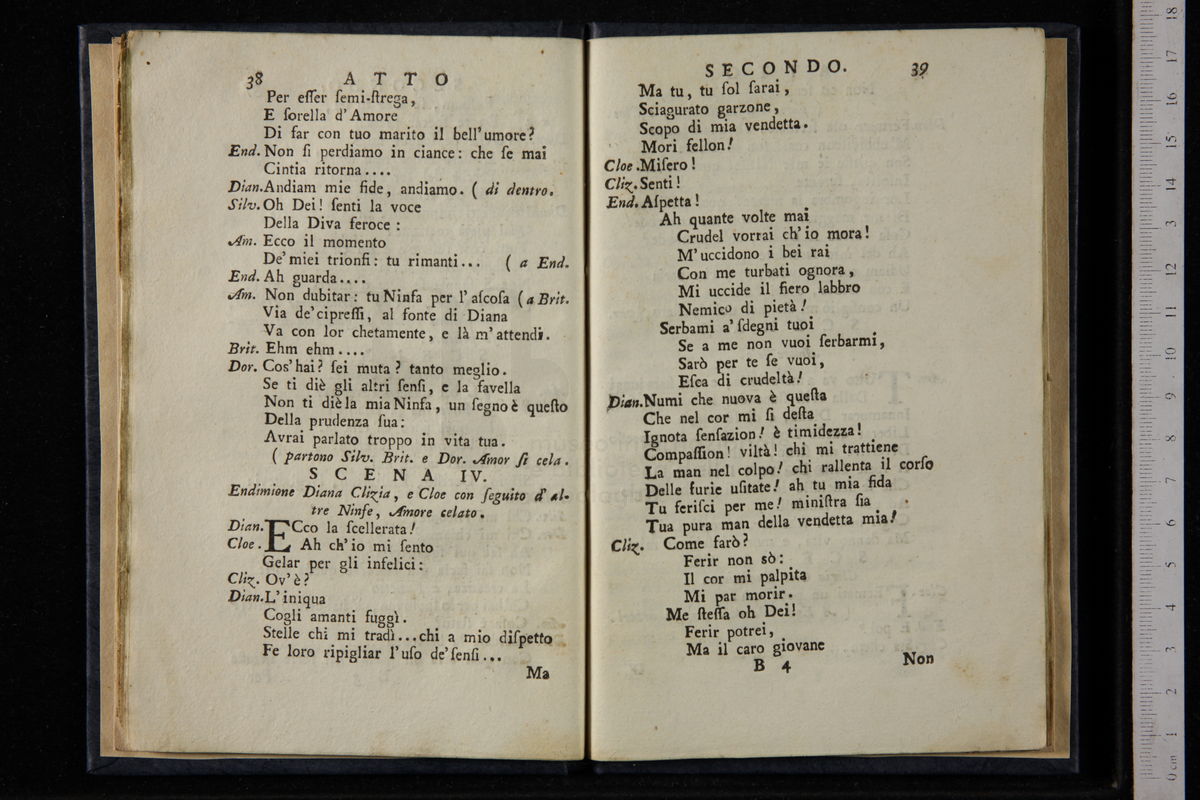 38 ATTO
Per eſſer ſemi-ſtrega,
E ſorella d'Amore
Di far con tuo marito il bell'umore?
End. Non ſi perdiamo in ciance: che ſe mai
Cintia ritorna....
Dian. Andiam mie fide, andiamo. ( di dentro.
Silv. Oh Dei! ſenti la voce
Della Diva feroce:
Am. Ecco il momento
De'miei trionfi: tu rimanti... ( a End.
End. Ah guarda....
Am. Non dubitar: tu Ninfa per l'aſcoſa ( a Brit.
Via de'cipreſſi, al fonte di Diana
Va con lor chetamente, e là m'attendi.
Brit. Ehm ehm....
Dor. Cos'hai? ſei muta? tanto meglio.
Se ti diè gli altri ſenſi, e la favella
Non ti diè la mia Ninfa, un ſegno è queſto
Della prudenza ſua:
Avrai parlato troppo in vita tua.
( partono Silv. Brit. e Dor. Amor ſi cela.
SCENA IV.
Endimione Diana Clizia, e Cloe con ſeguito d'al-
tre Ninfe, Amore celato.
Dian. ECco la ſcellerata!
Cloe. Ah ch'io mi ſento
Gelar per gli infelici:
Cliz. Ov'è?
Dian. L'iniqua
Cogli amanti fuggì.
Stelle chi mi tradì...chi a mio diſpetto
Fe loro ripigliar l'uſo de'ſenſi...
Ma
SECONDO. 39
Ma tu, tu ſol ſarai,
Sciagurato garzone,
Scopo di mia vendetta.
Mori fellon!
Cloe. Miſero!
Cliz. Senti!
End. Aſpetta!
Ah quante volte mai
Crudel vorrai ch'io mora!
M'uccidono i bei rai
Con me turbati ognora,
Mi uccide il fiero labbro
Nemico di pietà!
Serbami a'ſdegni tuoi
Se a me non vuoi ſerbarmi,
Sarò per te ſe vuoi,
Eſca di crudeltà!
Dian. Numi che nuova è queſta
Che nel cor mi ſi deſta
Ignota ſenſazion! è timidezza!
Compaſſion! viltà! chi mi trattiene
La man nel colpo! chi rallenta il corſo
Delle furie uſitate! ah tu mia fida
Tu feriſci per me! miniſtra ſia
Tua pura man della vendetta mia!
Cliz. Come farò?
Ferir non sò:
Il cor mi palpita
Mi par morir.
Me ſteſſa oh Dei!
Ferir potrei,
Ma il caro giovane
B 4 Non
18
17
16
15
14
13
12
11
10
9
8
7
6
5
4
3
2
1
0 cm